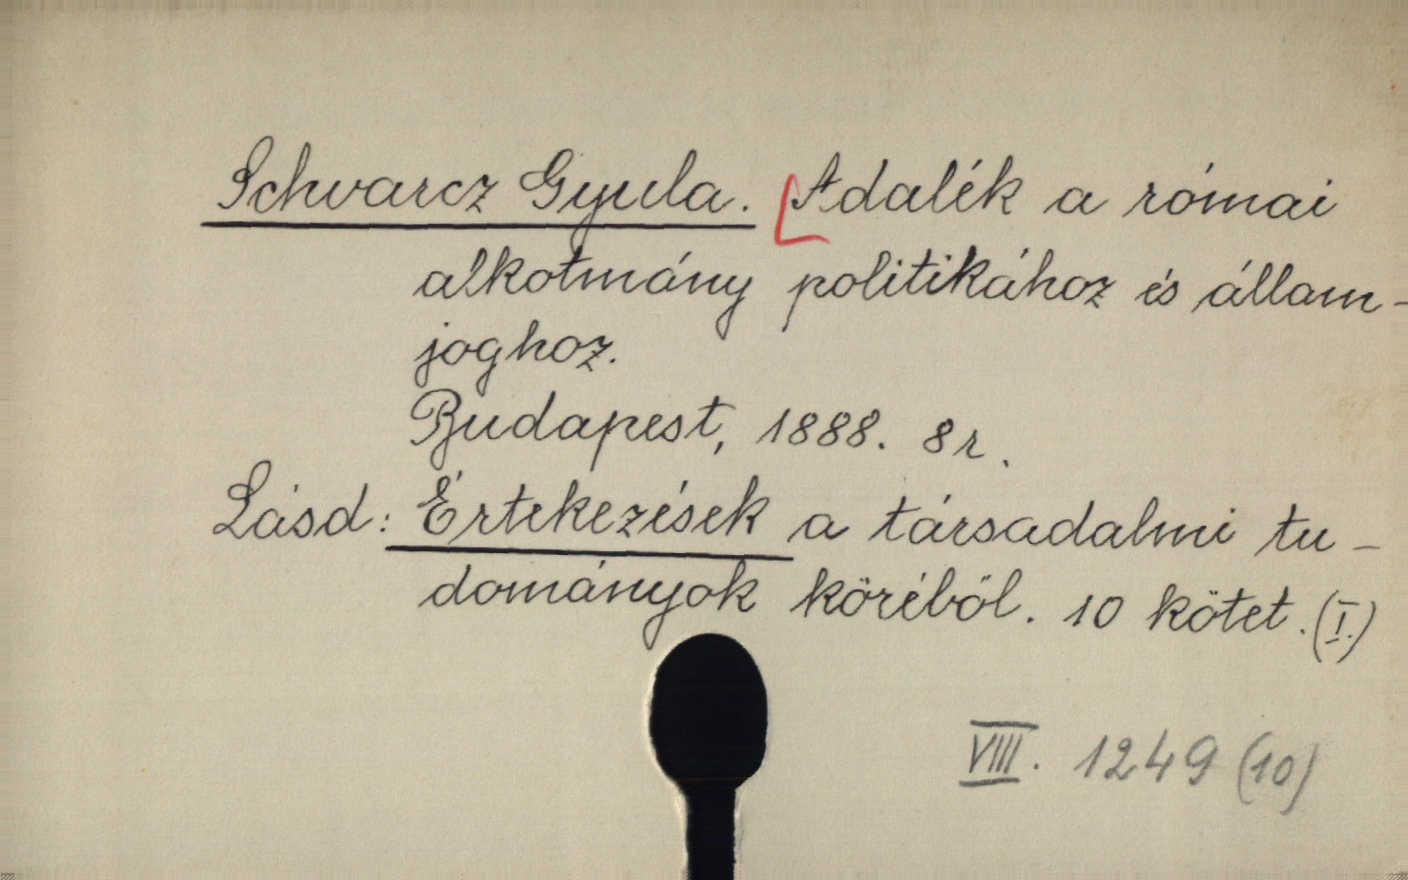 Schvarcz Gyula. Adalék a római
alkotmány politikához és állam-
joghoz.
Budapest, 1888. 8r.
Lásd: Értekezések a társadalmi tu-
dományok köréből. 10 kötet. (I.)
VIII. 1249 (10)